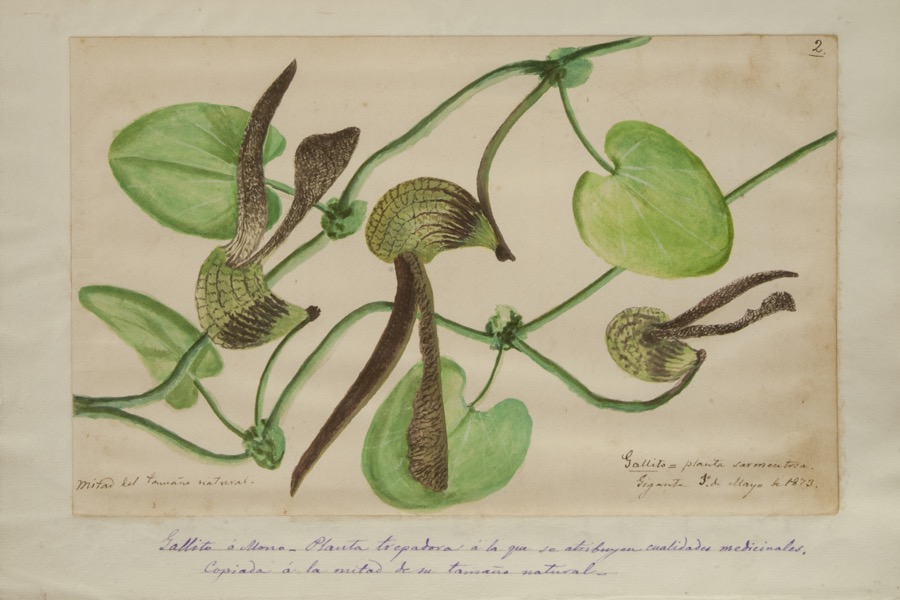 2.
Mitad del tamaño natural.
Gallito = planta sarmentosa.
Giganta 1º de Mayo de 1873.
Gallito ó Mono - Planta trepadora á la que se atribuyen cualidades medicinales.
Copiada á la mitad de su tamaño natural -